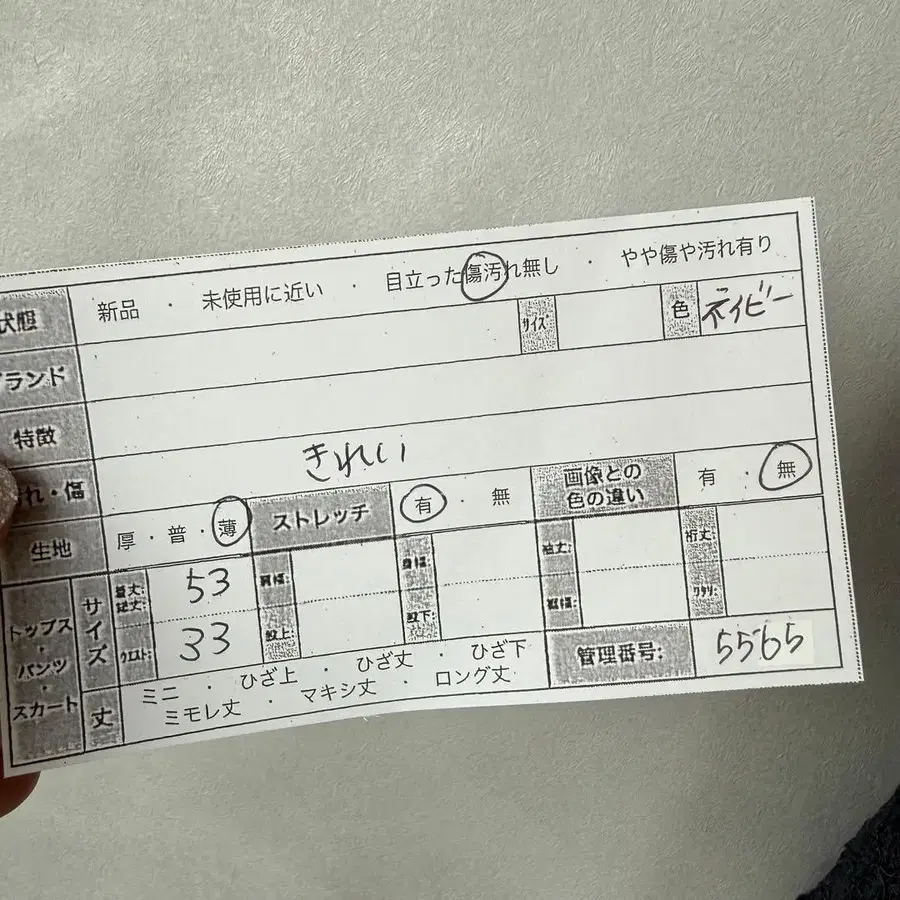 状態 新品 ・ 未使用に近い ・ 目立った傷汚れ無し ・ やや傷や汚れ有り
ブランド サイズ 色 ネイビー
特徴
汚れ・傷 きれい
生地 厚・普・薄 ストレッチ 有・無 画像との色の違い 有・無
トップス・パンツ・スカート サイズ 着丈: 総丈: 53 肩幅: 身幅: 袖丈: 裄丈:
ウエスト: 33 股上: 股下: 裾幅: ワタリ:
丈 ミニ ・ ひざ上 ・ ひざ丈 ・ ひざ下 管理番号: 5565
ミモレ丈 ・ マキシ丈 ・ ロング丈